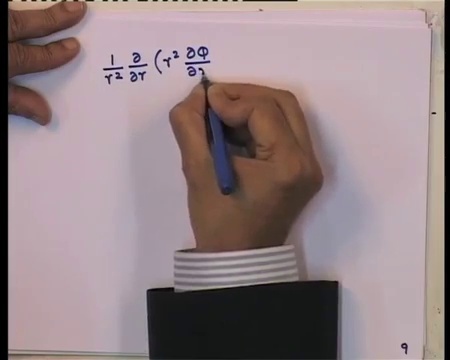 1/r² ∂/∂r (r² ∂Φ/∂r
9